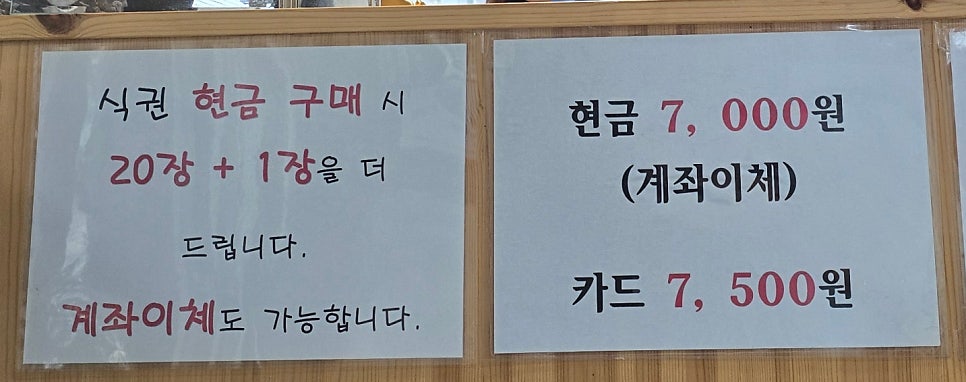 식권 현금 구매 시
20장 + 1장을 더
드립니다.
계좌이체도 가능합니다.
현금 7, 000원
(계좌이체)
카드 7, 500원